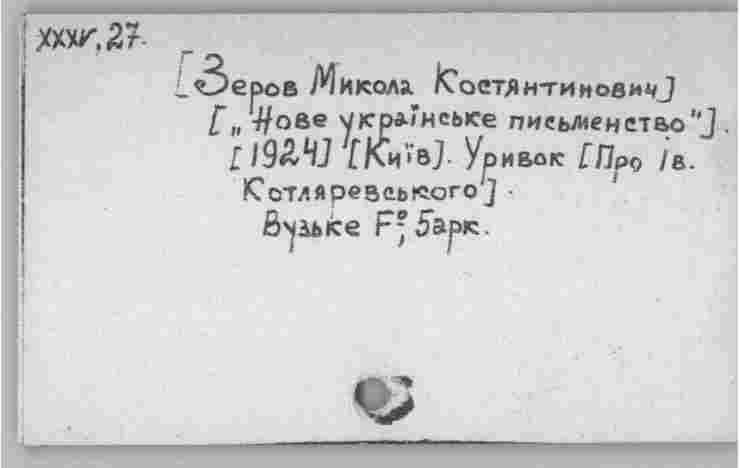 XXXV, 27.
[Зеров Микола Костянтинович]
[„Нове українське письменство"].
[1924] [Київ]. Уривок [Про Ів.
Котляревського].
Вузьке F°, 5арк.